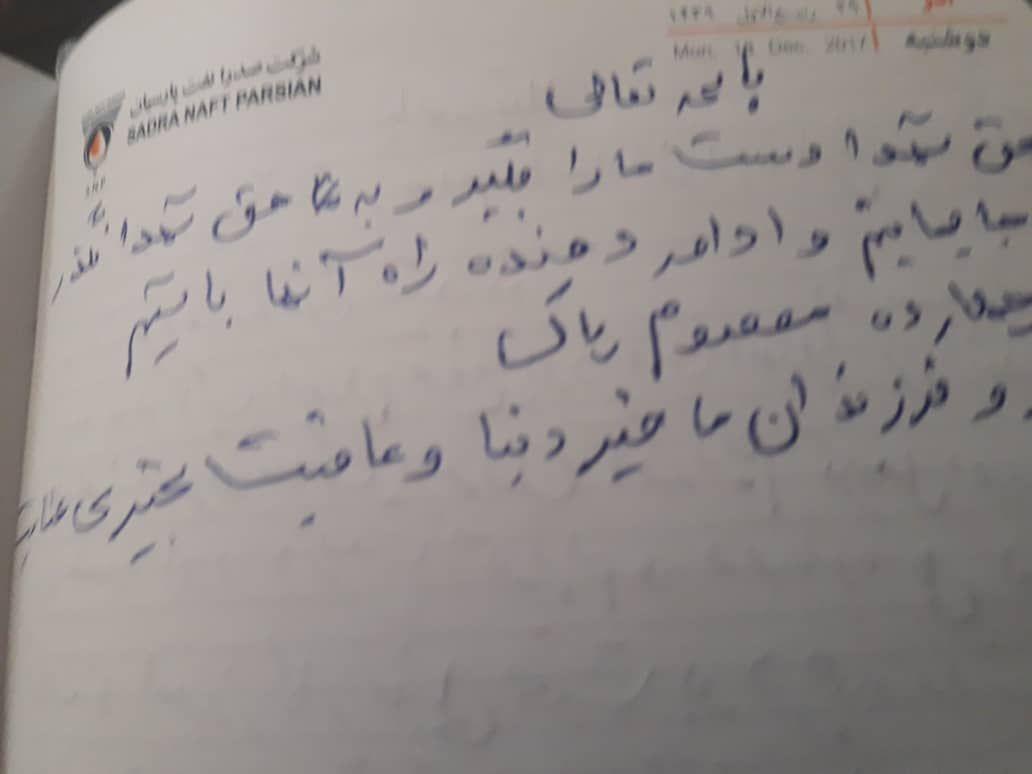 ۲۹ ربیع الاول ۱۴۳۹
Mon. 18 Dec. 2017
دوشنبه
شرکت صدرا نفت پارسیان
SADRA NAFT PARSIAN
باسمه تعالی
حق شهدا دست ما را بگیر و به ما حق شهدا بگذر
بیامایم و ادامه دهنده راه آنها باشیم
چهارده معصوم پاک
و فرزندان ما خیر دنیا و عاقبت بخیری عنایت